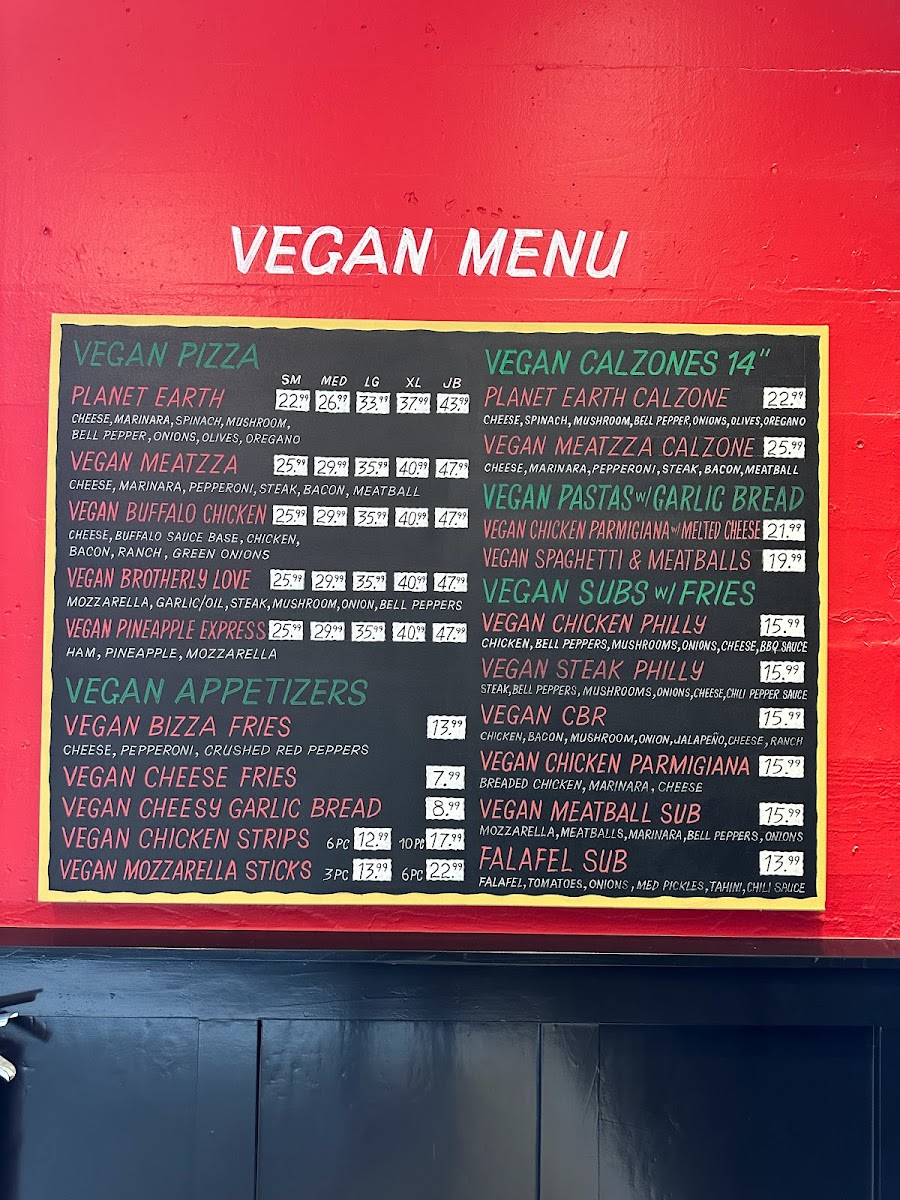 VEGAN MENU
VEGAN PIZZA
SM MED LG XL JB
PLANET EARTH 22.99 26.99 33.99 37.99 43.99
CHEESE, MARINARA, SPINACH, MUSHROOM,
BELL PEPPER, ONIONS, OLIVES, OREGANO
VEGAN MEATZZA 25.99 29.99 35.99 40.99 47.99
CHEESE, MARINARA, PEPPERONI, STEAK, BACON, MEATBALL
VEGAN BUFFALO CHICKEN 25.99 29.99 35.99 40.99 47.99
CHEESE, BUFFALO SAUCE BASE, CHICKEN,
BACON, RANCH, GREEN ONIONS
VEGAN BROTHERLY LOVE 25.99 29.99 35.99 40.99 47.99
MOZZARELLA, GARLIC/OIL, STEAK, MUSHROOM, ONION, BELL PEPPERS
VEGAN PINEAPPLE EXPRESS 25.99 29.99 35.99 40.99 47.99
HAM, PINEAPPLE, MOZZARELLA
VEGAN APPETIZERS
VEGAN BIZZA FRIES 13.99
CHEESE, PEPPERONI, CRUSHED RED PEPPERS
VEGAN CHEESE FRIES 7.99
VEGAN CHEESY GARLIC BREAD 8.99
VEGAN CHICKEN STRIPS 6PC 12.99 10PC 17.99
VEGAN MOZZARELLA STICKS 3PC 13.99 6PC 22.99
VEGAN CALZONES 14"
PLANET EARTH CALZONE 22.99
CHEESE, SPINACH, MUSHROOM, BELL PEPPER, ONIONS, OLIVES, OREGANO
VEGAN MEATZZA CALZONE 25.99
CHEESE, MARINARA, PEPPERONI, STEAK, BACON, MEATBALL
VEGAN PASTAS W/ GARLIC BREAD
VEGAN CHICKEN PARMIGIANA W/ MELTED CHEESE 21.99
VEGAN SPAGHETTI & MEATBALLS 19.99
VEGAN SUBS W/ FRIES
VEGAN CHICKEN PHILLY 15.99
CHICKEN, BELL PEPPERS, MUSHROOMS, ONIONS, CHEESE, BBQ SAUCE
VEGAN STEAK PHILLY 15.99
STEAK, BELL PEPPERS, MUSHROOMS, ONIONS, CHEESE, CHILI PEPPER SAUCE
VEGAN CBR 15.99
CHICKEN, BACON, MUSHROOM, ONION, JALAPEÑO, CHEESE, RANCH
VEGAN CHICKEN PARMIGIANA 15.99
BREADED CHICKEN, MARINARA, CHEESE
VEGAN MEATBALL SUB 15.99
MOZZARELLA, MEATBALLS, MARINARA, BELL PEPPERS, ONIONS
FALAFEL SUB 13.99
FALAFEL, TOMATOES, ONIONS, MED PICKLES, TAHINI, CHILI SAUCE